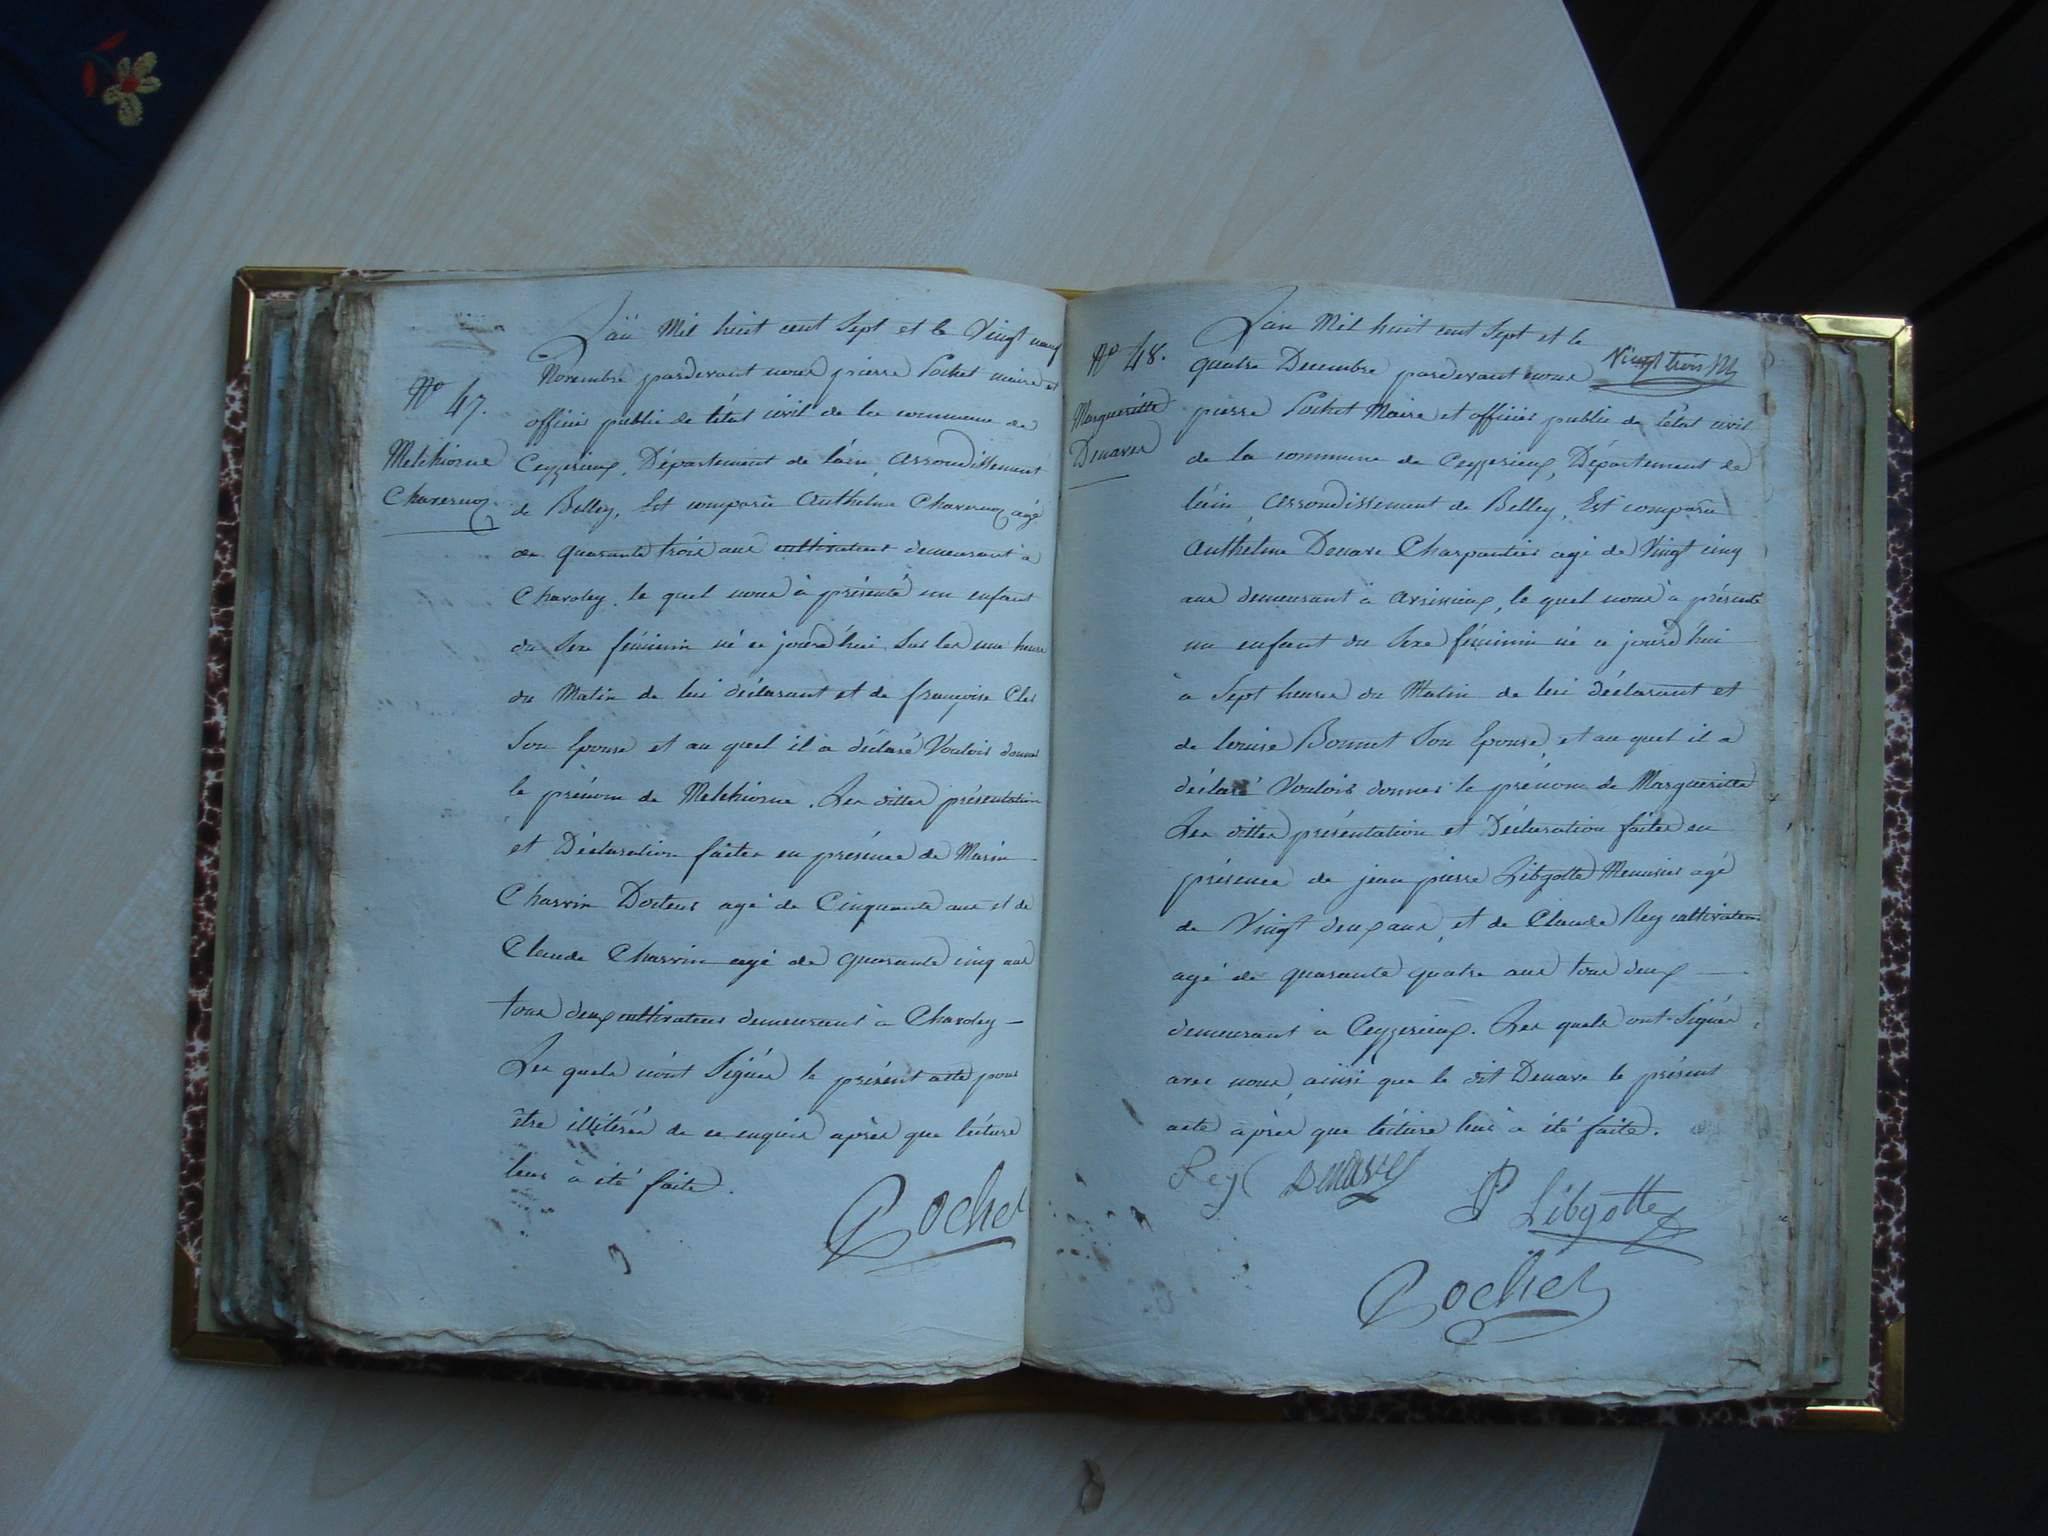 N° 47.
Melchiorne
Chavernoz
L'an Mil huit cent Sept et le Vingt neuf
Novembre pardevant nous pierre Pochet maire et
officier public de l'état civil de la commune de
Ceyzerieux, Département de l'ain, arrondissement
de Belley, Est comparu Anthelme Chavernoz agé
de quarante trois ans cultivateur demeurant à
Charoley, le quel nous à présenté un enfant
du Sexe féminin né ce jourd'hui Sur les une heure
du Matin de lui déclarant et de françoise
Son Epouse et au quel il a déclaré Vouloir donner
le prénom de Melchiorne. Les dittes présentation
et Déclaration faites en présence de Marin
Charvin agé de Cinquante ans et de
Claude Charvin agé de quarante cinq ans
tous deux cultivateurs demeurant à Charoley
Les quels n'ont Signés le présent acte pour
être illitérés de ce enquis après que lécture
leur à été faite.
Pochet
N° 48.
Margueritte
Denavex
L'an Mil huit cent Sept et le
quatre Decembre pardevant nous
Vingt trois
pierre Pochet Maire et officier public de l'état civil
de la commune de Ceyzerieux, Département de
l'ain, arrondissement de Belley, Est comparu
Anthelme Denave Charpentier agé de Vingt cinq
ans demeurant à avrissieux, le quel nous à présenté
un enfant du Sexe féminin né ce jourd'hui
à Sept heures du Matin de lui déclarant et
de louise Bonnet Son Epouse, et au quel il a
déclaré Vouloir donner le prénom de Margueritte
Les dittes présentation et Déclaration faites en
présence de jean pierre Libgotte Menuisier agé
de Vingt deux ans, et de Claude Rey cultivateur
agé de quarante quatre ans tous deux
demeurant à Ceyzerieux. Les quels ont Signés
avec nous, ainsi que le dit Denave le présent
acte après que lécture lui à été faite.
Rey Denave JP Libgotte
Pochet